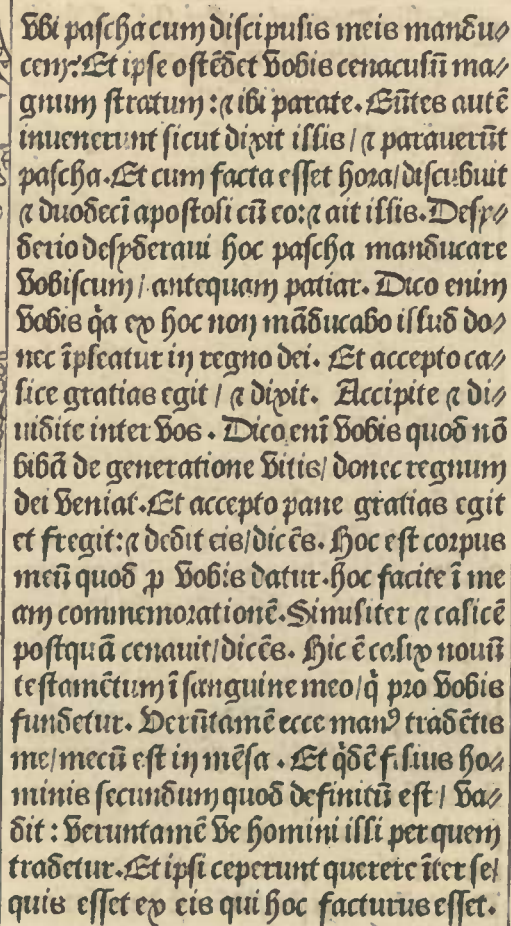 Ubi pascha cum discipulis meis mandu⸗
cem? Et ipse ostēdet vobis cenaculū ma⸗
gnum stratum: ⁊ ibi parate. Eūtes autē
inuenerunt sicut dixit illis / ⁊ parauerūt
pascha. Et cum facta esset hora / discubuit
⁊ duodeci apostoli cū eo: ⁊ ait illis. Desy⸗
derio desyderaui hoc pascha manducare
vobiscum / antequam patiar. Dico enim
vobis qa ex hoc non māducabo illud do⸗
nec īpleatur in regno dei. Et accepto ca⸗
lice gratias egit / ⁊ dixit. Accipite ⁊ di⸗
uidite inter vos. Dico eni vobis quod nō
bibā de generatione vitis / donec regnum
dei veniat. Et accepto pane gratias egit
et fregit: ⁊ dedit eis / dicēs. Hoc est corpus
meū quod ꝓ vobis datur. hoc facite ī me
am commemorationē. Similiter ⁊ calicē
postquā cenauit / dicēs. Hic ē calix nouū
testamētum ī sanguine meo / q̇ pro vobis
fundetur. Verūtamē ecce manꝰ tradētis
me / mecū est in mēsa. Et q̇dē filius ho⸗
minis secundum quod definitū est / va⸗
dit: veruntamē ve homini illi per quem
tradetur. Et ipsi ceperunt querere īter se /
quis esset ex eis qui hoc facturus esset.